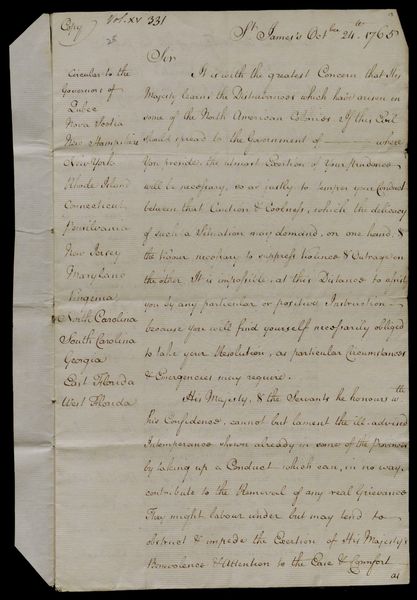 Copy Vol. XV 331
28
St. James's Octber 24th. 1765
Circular to the
Governors of
Quebec
Nova Scotia
New Hampshire
New York
Rhode Island
Connecticut
Pensilvania
New Jersey
Maryland
Virginia
North Carolina
South Carolina
Georgia
East Florida
West Florida
Sir
It is with the greatest Concern that His
Majesty learns the Disturbances which have arisen in
some of the North American Colonies. If this Evil
should spread to the Government of ——— where
You preside, the utmost Exertion of Your Prudence
will be necessary, so as justly to temper your Conduct
between that Caution & Coolness, which the delicacy
of such a Situation may demand, on one hand, &
the Vigour necessary to suppress Violence & Outrage on
the other. It is impossible, at this Distance to assist
you by any particular or positive Instruction
because you will find yourself necessarily obliged
to take your Resolution, as particular Circumstances
& Emergencies may require.
His Majesty, & the Servants he honours wth
his Confidence, cannot but lament the ill-advised
Intemperance shewn already in some of the Provinces
by taking up a Conduct which can, in no way,
contribute to the Removal of any real Grievance
They might labour under but may tend to
obstruct & impede the Exertion of His Majesty's
Benevolence & Attention to the Ease & Comfort
as